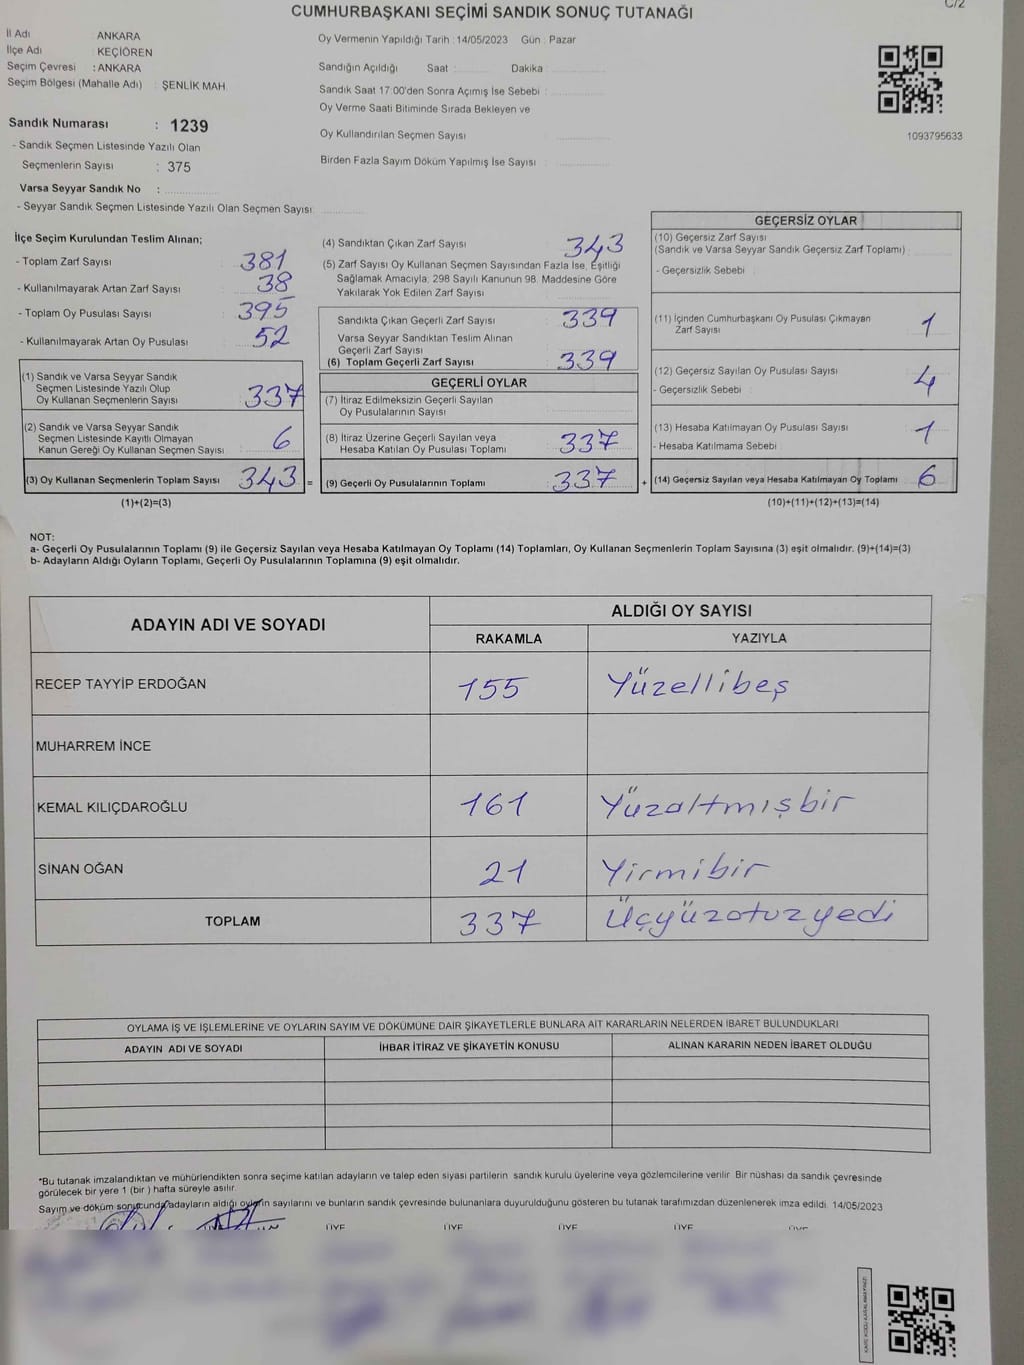 C/2
CUMHURBAŞKANI SEÇİMİ SANDIK SONUÇ TUTANAĞI
İl Adı : ANKARA
İlçe Adı : KEÇİÖREN
Seçim Çevresi : ANKARA
Seçim Bölgesi (Mahalle Adı) : ŞENLİK MAH.
Sandık Numarası : 1239
- Sandık Seçmen Listesinde Yazılı Olan
Seçmenlerin Sayısı : 375
Varsa Seyyar Sandık No :
- Seyyar Sandık Seçmen Listesinde Yazılı Olan Seçmen Sayısı:
Oy Vermenin Yapıldığı Tarih : 14/05/2023 Gün : Pazar
Sandığın Açıldığı Saat : Dakika :
Sandık Saat 17:00'den Sonra Açımış İse Sebebi :
Oy Verme Saati Bitiminde Sırada Bekleyen ve
Oy Kullandırılan Seçmen Sayısı
Birden Fazla Sayım Döküm Yapılmış İse Sayısı :
1093795633
İlçe Seçim Kurulundan Teslim Alınan;
- Toplam Zarf Sayısı : 381
- Kullanılmayarak Artan Zarf Sayısı : 38
- Toplam Oy Pusulası Sayısı : 395
- Kullanılmayarak Artan Oy Pusulası : 52
(1) Sandık ve Varsa Seyyar Sandık
Seçmen Listesinde Yazılı Olup
Oy Kullanan Seçmenlerin Sayısı : 337
(2) Sandık ve Varsa Seyyar Sandık
Seçmen Listesinde Kayıtlı Olmayan
Kanun Gereği Oy Kullanan Seçmen Sayısı : 6
(3) Oy Kullanan Seçmenlerin Toplam Sayısı : 343 =
(1)+(2)=(3)
(4) Sandıktan Çıkan Zarf Sayısı : 343
(5) Zarf Sayısı Oy Kullanan Seçmen Sayısından Fazla İse, Eşitliği
Sağlamak Amacıyla; 298 Sayılı Kanunun 98. Maddesine Göre
Yakılarak Yok Edilen Zarf Sayısı :
Sandıkta Çıkan Geçerli Zarf Sayısı : 339
Varsa Seyyar Sandıktan Teslim Alınan
Geçerli Zarf Sayısı
(6) Toplam Geçerli Zarf Sayısı : 339
GEÇERLİ OYLAR
(7) İtiraz Edilmeksizin Geçerli Sayılan
Oy Pusulalarının Sayısı :
(8) İtiraz Üzerine Geçerli Sayılan veya
Hesaba Katılan Oy Pusulası Toplamı : 337
(9) Geçerli Oy Pusulalarının Toplamı : 337 +
GEÇERSİZ OYLAR
(10) Geçersiz Zarf Sayısı
(Sandık ve Varsa Seyyar Sandık Geçersiz Zarf Toplamı) :
- Geçersizlik Sebebi :
(11) İçinden Cumhurbaşkanı Oy Pusulası Çıkmayan
Zarf Sayısı : 1
(12) Geçersiz Sayılan Oy Pusulası Sayısı : 4
- Geçersizlik Sebebi :
(13) Hesaba Katılmayan Oy Pusulası Sayısı : 1
- Hesaba Katılmama Sebebi :
(14) Geçersiz Sayılan veya Hesaba Katılmayan Oy Toplamı : 6
(10)+(11)+(12)+(13)=(14)
NOT:
a- Geçerli Oy Pusulalarının Toplamı (9) ile Geçersiz Sayılan veya Hesaba Katılmayan Oy Toplamı (14) Toplamları, Oy Kullanan Seçmenlerin Toplam Sayısına (3) eşit olmalıdır. (9)+(14)=(3)
b- Adayların Aldığı Oyların Toplamı, Geçerli Oy Pusulalarının Toplamına (9) eşit olmalıdır.
ADAYIN ADI VE SOYADI ALDIĞI OY SAYISI
RAKAMLA YAZIYLA
RECEP TAYYİP ERDOĞAN 155 Yüzellibeş
MUHARREM İNCE
KEMAL KILIÇDAROĞLU 161 Yüzaltmışbir
SİNAN OĞAN 21 Yirmibir
TOPLAM 337 Üçyüzotuzyedi
OYLAMA İŞ VE İŞLEMLERİNE VE OYLARIN SAYIM VE DÖKÜMÜNE DAİR ŞİKAYETLERLE BUNLARA AİT KARARLARIN NELERDEN İBARET BULUNDUKLARI
ADAYIN ADI VE SOYADI İHBAR İTİRAZ VE ŞİKAYETİN KONUSU ALINAN KARARIN NEDEN İBARET OLDUĞU
*Bu tutanak imzalandıktan ve mühürlendikten sonra seçime katılan adayların ve talep eden siyasi partilerin sandık kurulu üyelerine veya gözlemcilerine verilir. Bir nüshası da sandık çevresinde
görülecek bir yere 1 (bir ) hafta süreyle asılır.
Sayım ve döküm sonucunda adayların aldığı oyların sayılarını ve bunların sandık çevresinde bulunanlara duyurulduğunu gösteren bu tutanak tarafımızdan düzenlenerek imza edildi. 14/05/2023
ÜYE ÜYE ÜYE ÜYE ÜYE